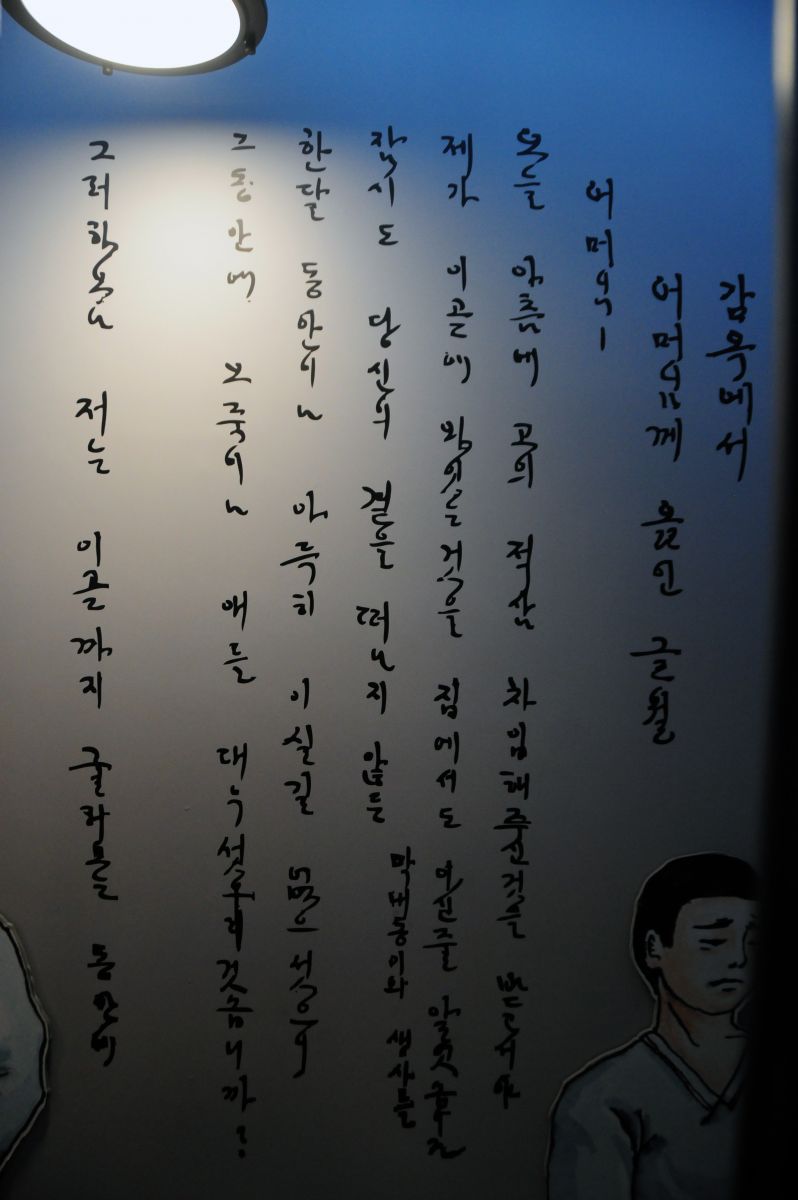 감옥에서
어머님께 올린 글월
어머님!
오늘 아츰에 고의 적삼 차입해주신것을
제가 이곧에 와잇는것을 집에서도 아신줄
잠시도 당신의 곁을 떠나지 않든 막내동이의 생사를
한달 동안이나 아득히 아실길 없으섯으니
그동안에 오죽이나 애를
그러하오나 저는 이곧까지 동안에